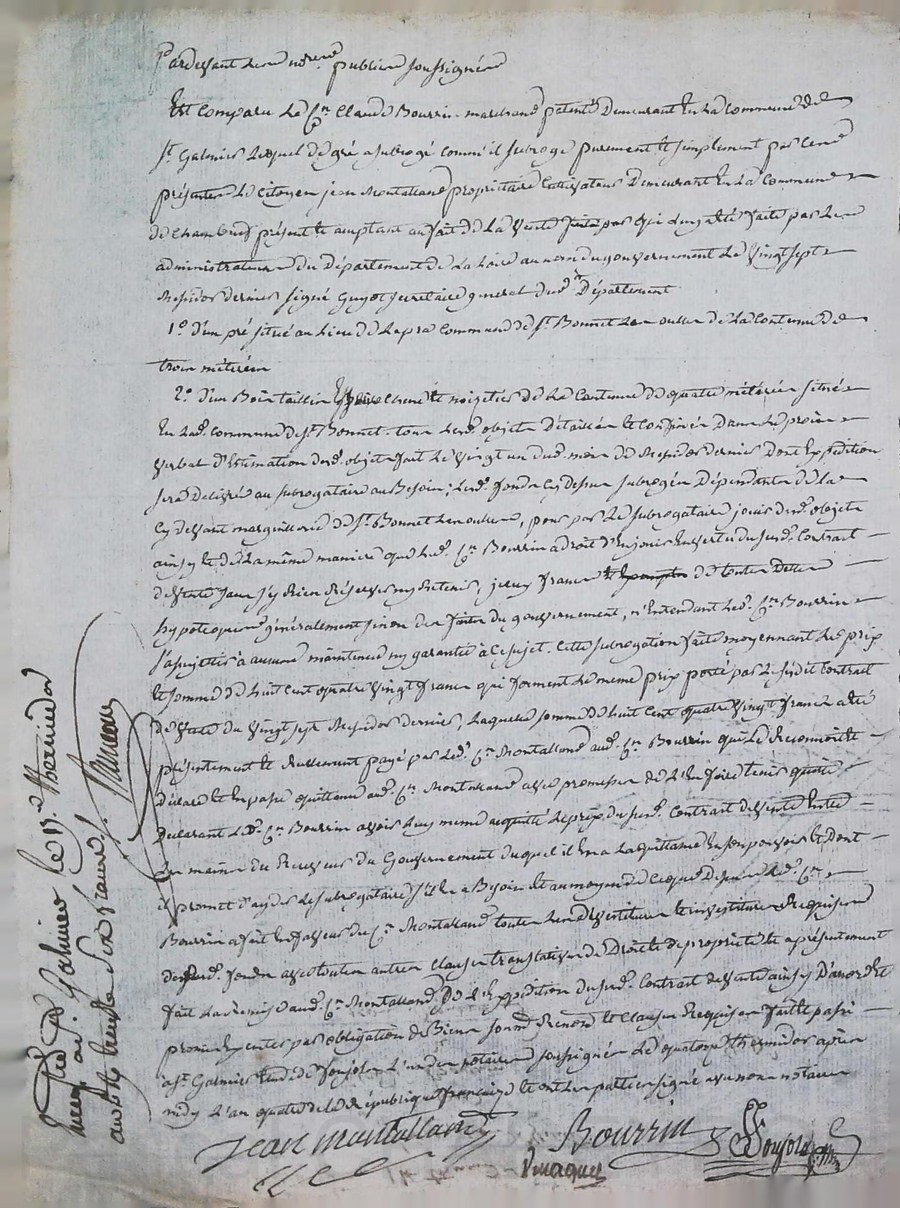 Pardevant les notaires publics soussignés
Est comparu le Cn. Claude Bourrin marchand patenté demeurant en la commune de
St. Galmier lequel de gré a subrogé comme il subroge purement et simplement par ces
présentes le citoyen jean Montalland propriétaire cultivateur demeurant en la commune
de Chambeuf présent et acceptant au fait de la vente qui luy a été faite par les
administrateurs du Département de la Loire au nom du gouvernement le vingt sept
Messidor dernier signé Guyot secretaire general dud. Département
1° d'un pré situé au lieu de Lapra commune de St. Bonnet les oulles de la contenue de
trois métérées
2° d'un Bois taillis chêne et noizetiers de la contenue de quatre métérées situé
en lad. commune de St. Bonnet. tous lesd. objets détaillés et confinés dans le procès
verbal d'estimation desd. objets fait le vingt un dud. mois de Messidor dernier dont expédition
sera délivrée au subrogataire au Besoin; lesd. fonds cy dessus subrogés dépendants de la
cy devant marguillerie de St. Bonnet les oulles, pour par le subrogataire jouir desd. objets
ainsy et de la même manière que led. Cn. Bourrin a droit d'en jouir en vertu du susd. contrat
de vente sans s'y rien réserver ny retenir, iceux francs de toutes dettes
hypotèques généralement sinon des faits du gouvernement, n'entendant led. Cn. Bourrin
s'assujettir à aucune maintenue ny garantie à ce sujet. Cette subrogation faite moyennant le prix
et somme de huit cent quatre vingt francs qui forment le meme prix porté par le susdit contrat
de vente du vingt sept Messidor dernier, laquelle somme de huit cent quatre vingt francs a été
présentement et réellement payé par led. Cn. Montalland aud. Cn. Bourrin qui le reconnoit
déclare et en passe quittance aud. Cn. Montalland avec promesse de l'en faire tenir quitte
Déclarant led. Cn. Bourrin avoir luy meme acquitté le prix du susd. contrat de vente entre
les mains du Receveur du Gouvernement duquel il en a la quittance en son pouvoir et dont
il promet d'ayder le subrogataire s'il en a Besoin et au moyen de ce que dessus led. Cn.
Bourrin a fait en faveur du Cn. Montalland toutes les dévestitures et investitures requises
desd. fonds avec toutes autres clauses translatives de droit et de propriété et a présentement
fait la remise aud. Cn. Montalland de l'expédition du susd. contrat de vente ainsy d'accord et
promis par obligation de Biens soumis. Renonc. et clauses requises fait et passé
a St. Galmier étude de Ponjols l'un des notaires soussignés le quatorze thermidor après
midy l'an quatre de la République française et ont les parties signé avec nous notaires
jean montalland Bourrin
Ponjols
Enreg. a St. Galmier le 15. Thermidor